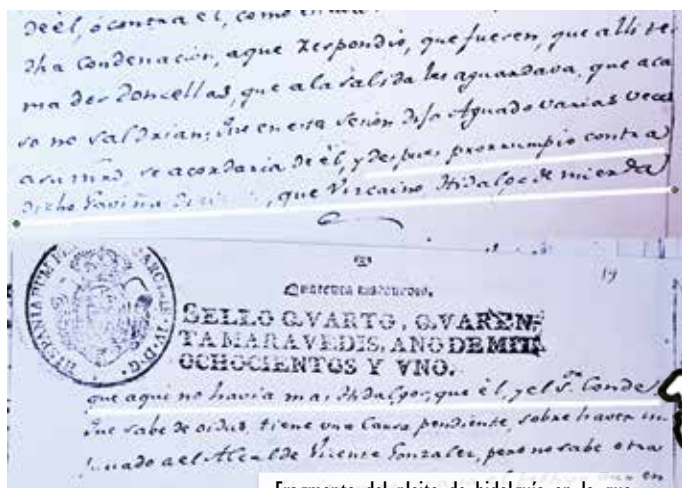 de èl, ò contra el, como
dha Condenacion, aque respondió, que fuesen, que alli
ma der Doncellas, que ala Salida les aguardava, que aca
so no Saldrian; Que en esta Sesion dijo Aguado varias veces
asu mrd, se acordaria de èl, y despues prorrumpio contra
dicho Gaviña, que Vizcaino, Hidalgo de mierda
19
Quarenta maravedis.
SELLO QVARTO, QVAREN-
TA MARAVEDIS, AÑO DE MIL
OCHOCIENTOS Y VNO.
que aqui no havia mas Hidalgos, que èl, y el Sr. Conde
Que sabe de oidas, tiene una Causa pendiente, sobre haver in
a el Alcalde Vicente Gonzalez, pero no sabe otra
Fragmento del pleito de hidalguía en la que